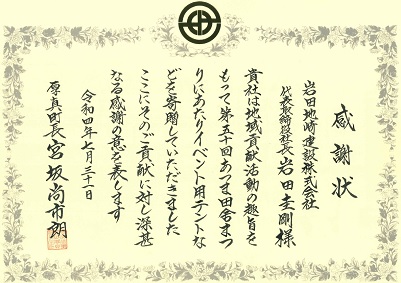 感謝状
岩田地崎建設株式会社
代表取締役社長 岩田圭剛様
貴社は地域貢献活動の趣旨を
もって第五十回あつま田舎まつ
りにあたりイベント用テントな
どを寄贈していただきました
ここにそのご貢献に対し深甚
なる感謝の意を表します
令和四年七月三十一日
厚真町長 宮坂尚市朗